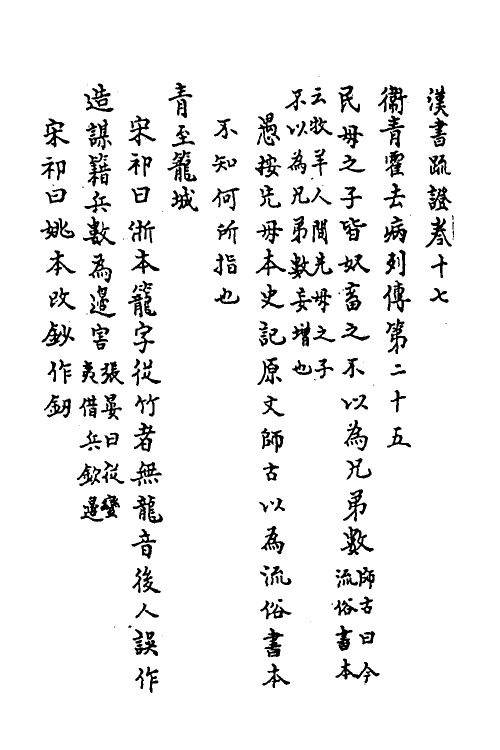 漢書疏證卷十七
衞青霍去病列傳第二十五
民母之子皆奴畜之不以為兄弟數師古曰今流俗書本
云牧羊人間先母之子不以為兄弟數妄增也
愚按先母本史記原文師古以為流俗書本
不知何所指也
青至籠城
宋祁曰浙本籠字從竹者無龍音後人誤作
造謀籍兵數為邉害張晏曰從蠻夷借兵欽邉
宋祁曰姚本改鈔作釰